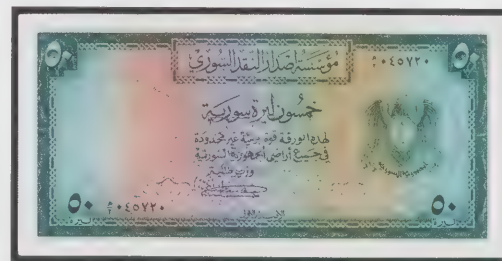 ٥٠
مؤسسة إصدار النقد السوري
٠٤٥٧٢٠
٥٠
خمسون ليرة سورية
لهذه الورقة قوة برئية غير محدودة
في جميع أراضي الجمهورية السورية
وزير المالية
٥٠
٠٤٥٧٢٠
٥٠
ليرة